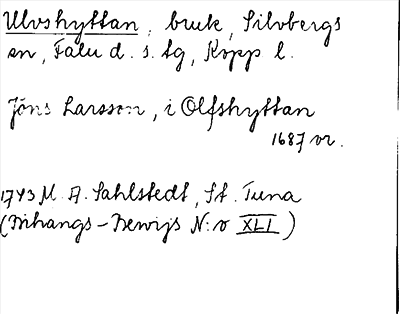 Ulvshyttan, bruk, Silvbergs
sn, Falu d. s. tg, Kopp l.
Jöns Larsson, i Olfshyttan
1687 vr.
1743 M. A. Sahlstedt, St. Tuna
(Bihangs-Bewijs N:o XLI)